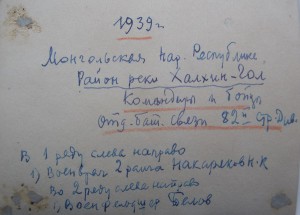 1939 г
Монгольская Нар. Республика.
Район реки Халхин-Гол
Командиры и бойцы
Отд. бат. связи 82й Стр. Див.
В 1 ряду слева направо
1) Военврач 2 ранга Накаряков Н.К
Во 2 ряду слева направо
1, Воен фельдшер Белов